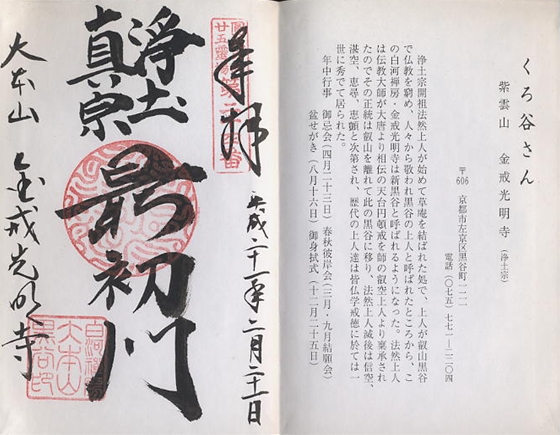 くろ谷さん
紫雲山　金戒光明寺（浄土宗）
〒606　京都市左京区黒谷町一二一
電話（〇七五）七七一―二二〇四
浄土宗開祖法然上人が始めて草庵を結ばれた処で、上人が叡山黒谷
で仏教を窮め、人々から敬われ黒谷の上人と呼ばれたところから、こ
の白河禅房・金戒光明寺は新黒谷と呼ばれるようになった。法然上人
は伝教大師が大唐より相伝の天台円頓戒を師の叡空上人より稟承され
たのでその正統は叡山を離れて此の黒谷に移り、法然上人滅後は信空、
湛空、恵尋、恵顗と次第され、歴代の上人達は皆仏学戒徳に於ては一
世に秀でて居られた。
年中行事　御忌会（四月二十三日）　春秋彼岸会（三月・九月結願会）
盆せがき（八月十六日）　御身拭式（十二月二十五日）
奉拝
平成二十一年二月二十一日
浄土
真宗
最初門
大本山　金戒光明寺
大本山
黒谷印